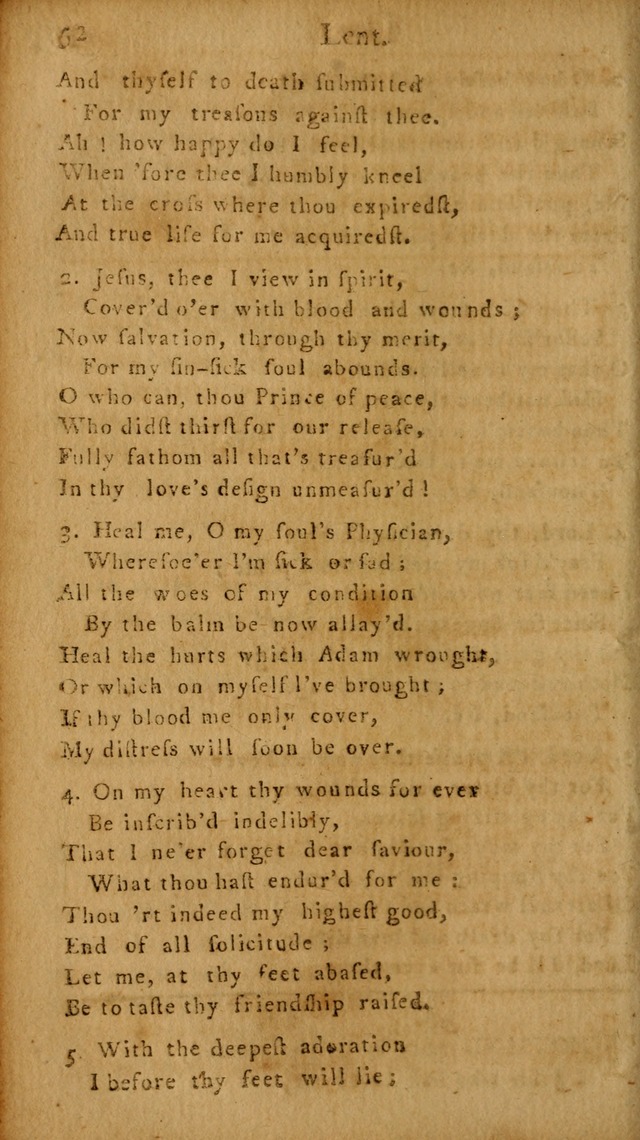 62 Lent.
And thyſelf to death ſubmitted
For my treaſons againſt thee.
Ah ! how happy do I feel,
When 'fore thee I humbly kneel
At the croſs where thou expiredſt,
And true life for me acquiredſt.
2. Jeſus, thee I view in ſpirit,
Cover'd o'er with blood and wounds ;
Now ſalvation, through thy merit,
For my ſin-ſick ſoul abounds.
O who can, thou Prince of peace,
Who didſt thirſt for our releaſe,
Fully fathom all that's treaſur'd
In thy love's deſign unmeaſur'd !
3. Heal me, O my ſoul's Phyſician,
Whereſoe'er I'm ſick or ſad ;
All the woes of my condition
By the balm be now allay'd.
Heal the hurts which Adam wrought,
Or which on myſelf I've brought ;
If thy blood me only cover,
My diſtreſs will ſoon be over.
4. On my heart thy wounds for ever
Be inſcrib'd indelibly,
That I ne'er forget dear ſaviour,
What thou haſt endur'd for me :
Thou 'rt indeed my higheſt good,
End of all ſolicitude ;
Let me, at thy feet abaſed,
Be to taſte thy friendſhip raiſed.
5. With the deepeſt adoration
I before thy feet will lie ;